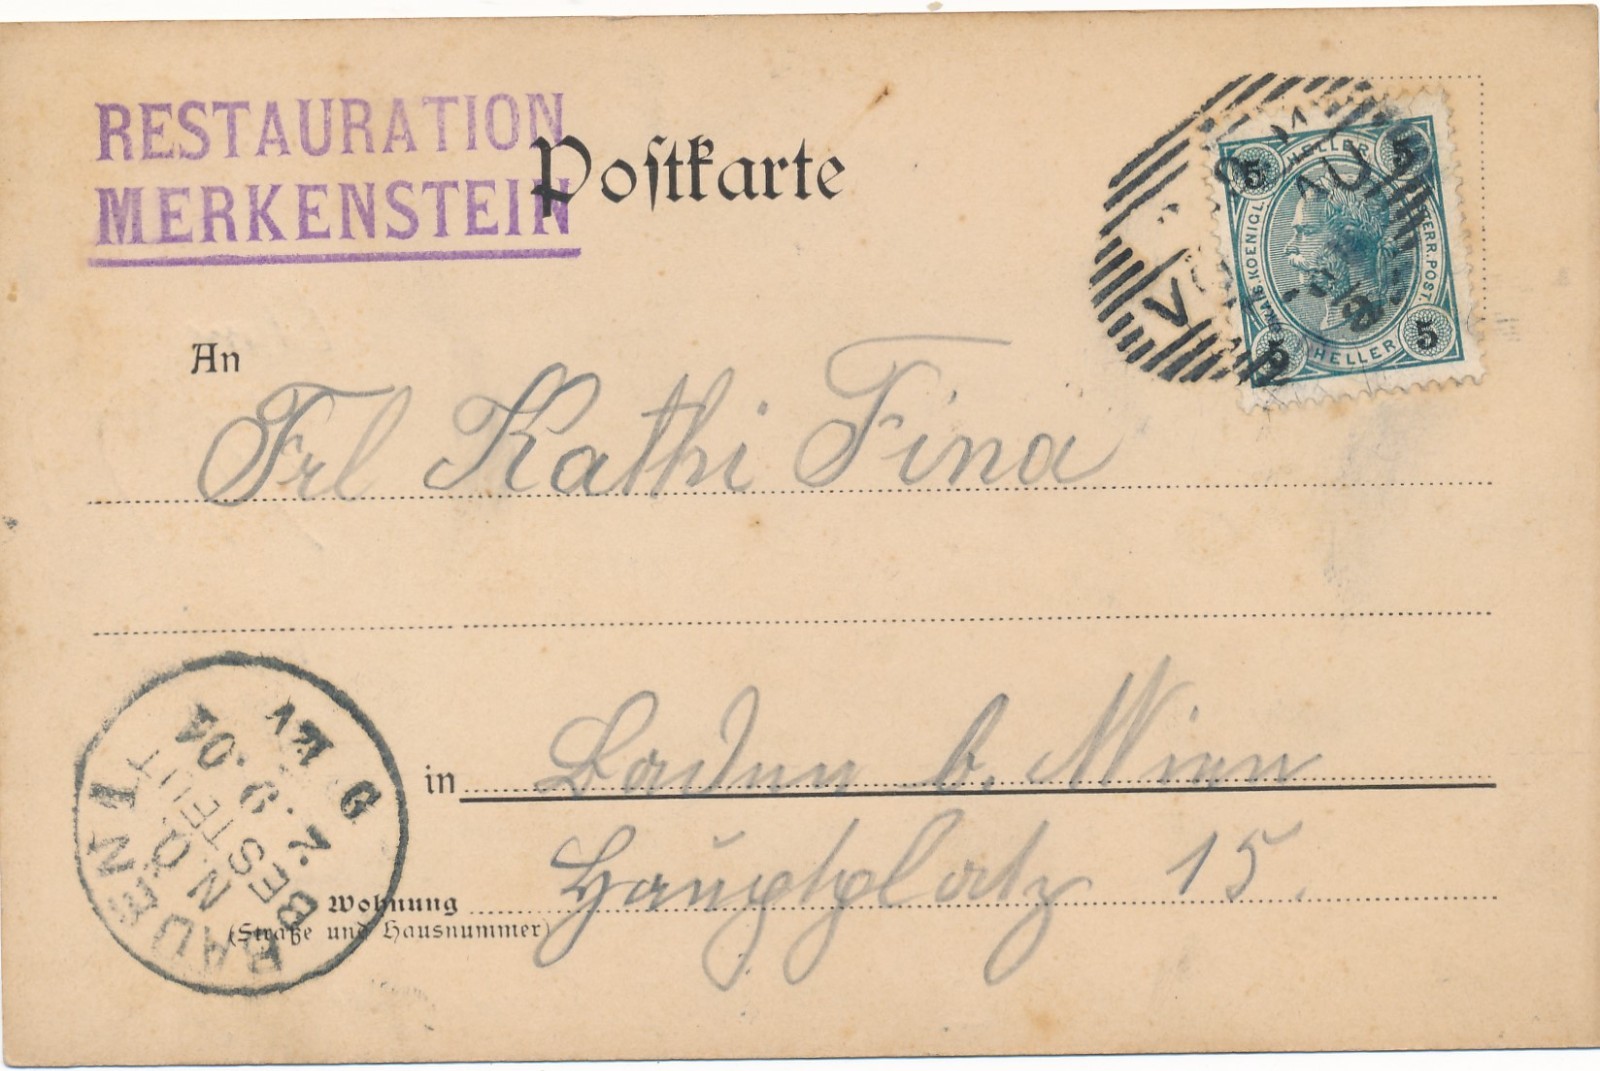 RESTAURATION
MERKENSTEIN
Postkarte
5 HELLER 5
KAIS. KOENIGL. ÖSTERR. POST.
5 HELLER 5
An
Frl Kathi Fina
in Baden b. Wien
Hauptplatz 15.
Wohnung
(Straße und Hausnummer)
BADEN 1
BESTELLT
2.9.04